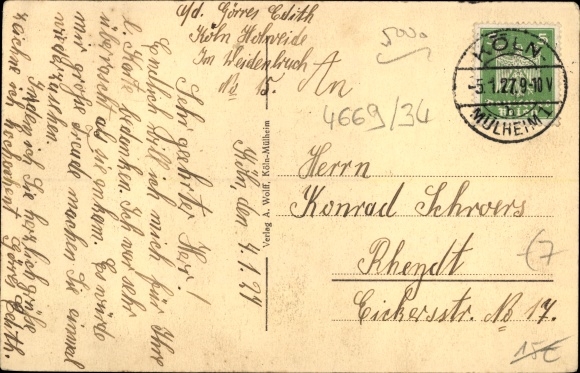 c/d. Görres Edith
Köln Holweide
Im Weidenbruch
No 15.
Köln, den 4.1.27
Sehr geehrter Herr!
Endlich will ich mich für Ihre
l. Karte bedanken. Ich war sehr
überrascht als sie ankam. Es würde
mir große Freude machen Sie einmal
wiederzusehen.
Indem ich Sie herzlich grüße
zeichne ich hochachtend Görres Edith.
Verlag A. Wolff, Köln-Mülheim
5000
4669/34
An
Herrn
Konrad Schroers
Rheydt
Eickersstr. No 17.
KÖLN
-5.1.27.9-10V
MÜLHEIM 1
5
(7
15€